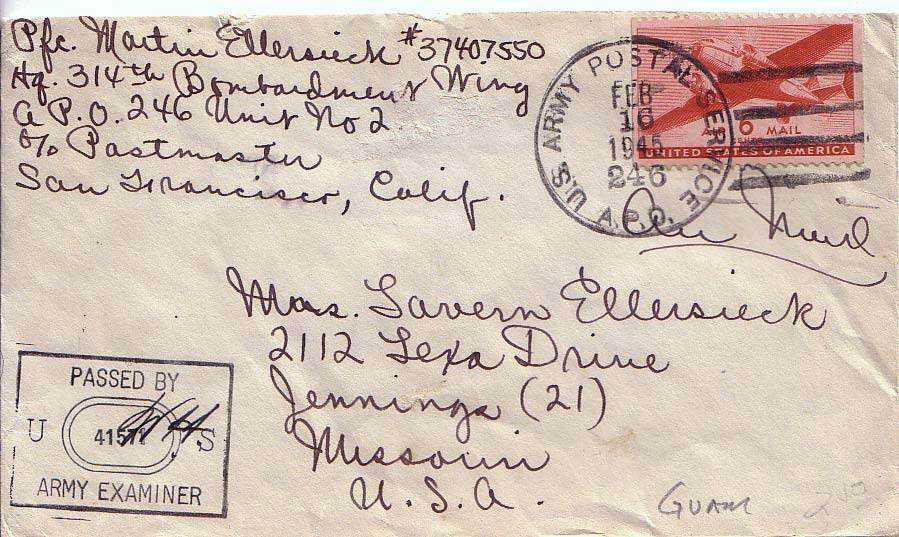 Pfc. Martin Ellersieck #37407550
Hq. 314th Bombardment Wing
A.P.O. 246 Unit No 2
c/o Postmaster
San Francisco, Calif.
U.S. ARMY POSTAL SERVICE
A.P.O.
FEB
16
1945
246
AIR 6 CENTS MAIL
UNITED STATES OF AMERICA
Air Mail
Mrs. Lavern Ellersieck
2112 Lexa Drive
Jennings (21)
Missouri
U.S.A.
PASSED BY
U 41571 S
ARMY EXAMINER
GUAM